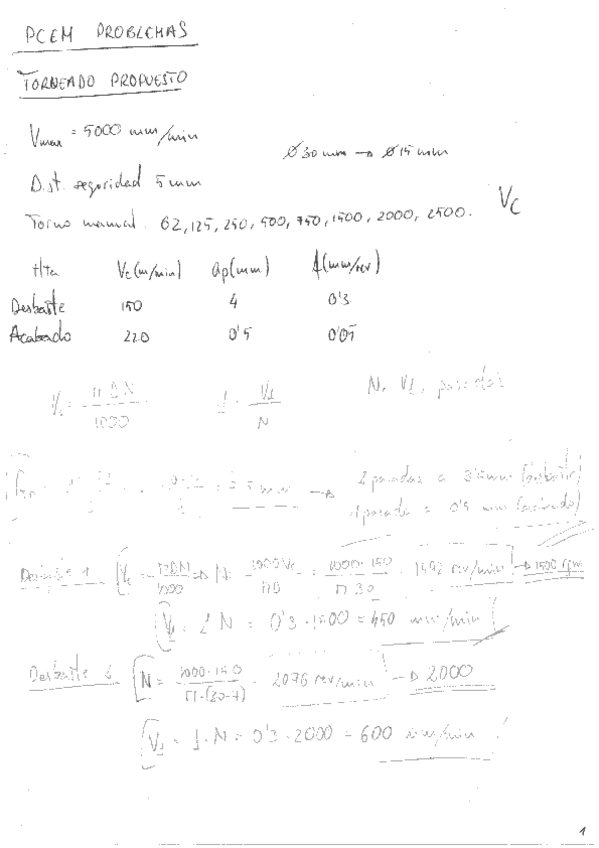 PCEM PROBLEMAS
TORNEADO PROPUESTO
Vmax = 5000 mm/min
Ø30 mm → Ø15 mm
Dist. seguridad 5 mm
Torno manual. 62, 125, 250, 500, 750, 1500, 2000, 2500. Vc
Hta Vc(m/min) ap(mm) f(mm/rev)
Desbaste 150 4 0'3
Acabado 220 0'5 0'05
Vc = ΠDN/1000 f = Vf/N N, Vf, pasadas
5 mm → 2 pasadas a 3'5mm (desbaste)
1 pasada a 0'5 mm (acabado)
Desbaste 1 [Vc = ΠDN/1000 → N = 1000Vc/ΠD = 1000·150/Π 30 = 1592 rev/min] → 1500 rpm
[Vf = f N = 0'3 · 1500 = 450 mm/min]
Desbaste 2 [N = 1000·150/Π·(30-7) = 2076 rev/min] → 2000
[Vf = f·N = 0'3·2000 = 600 mm/min
1